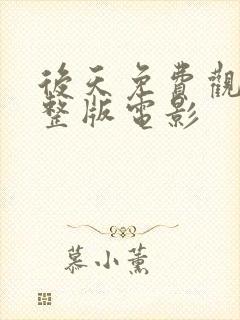 後天免費觀
整版電影
慕小薰